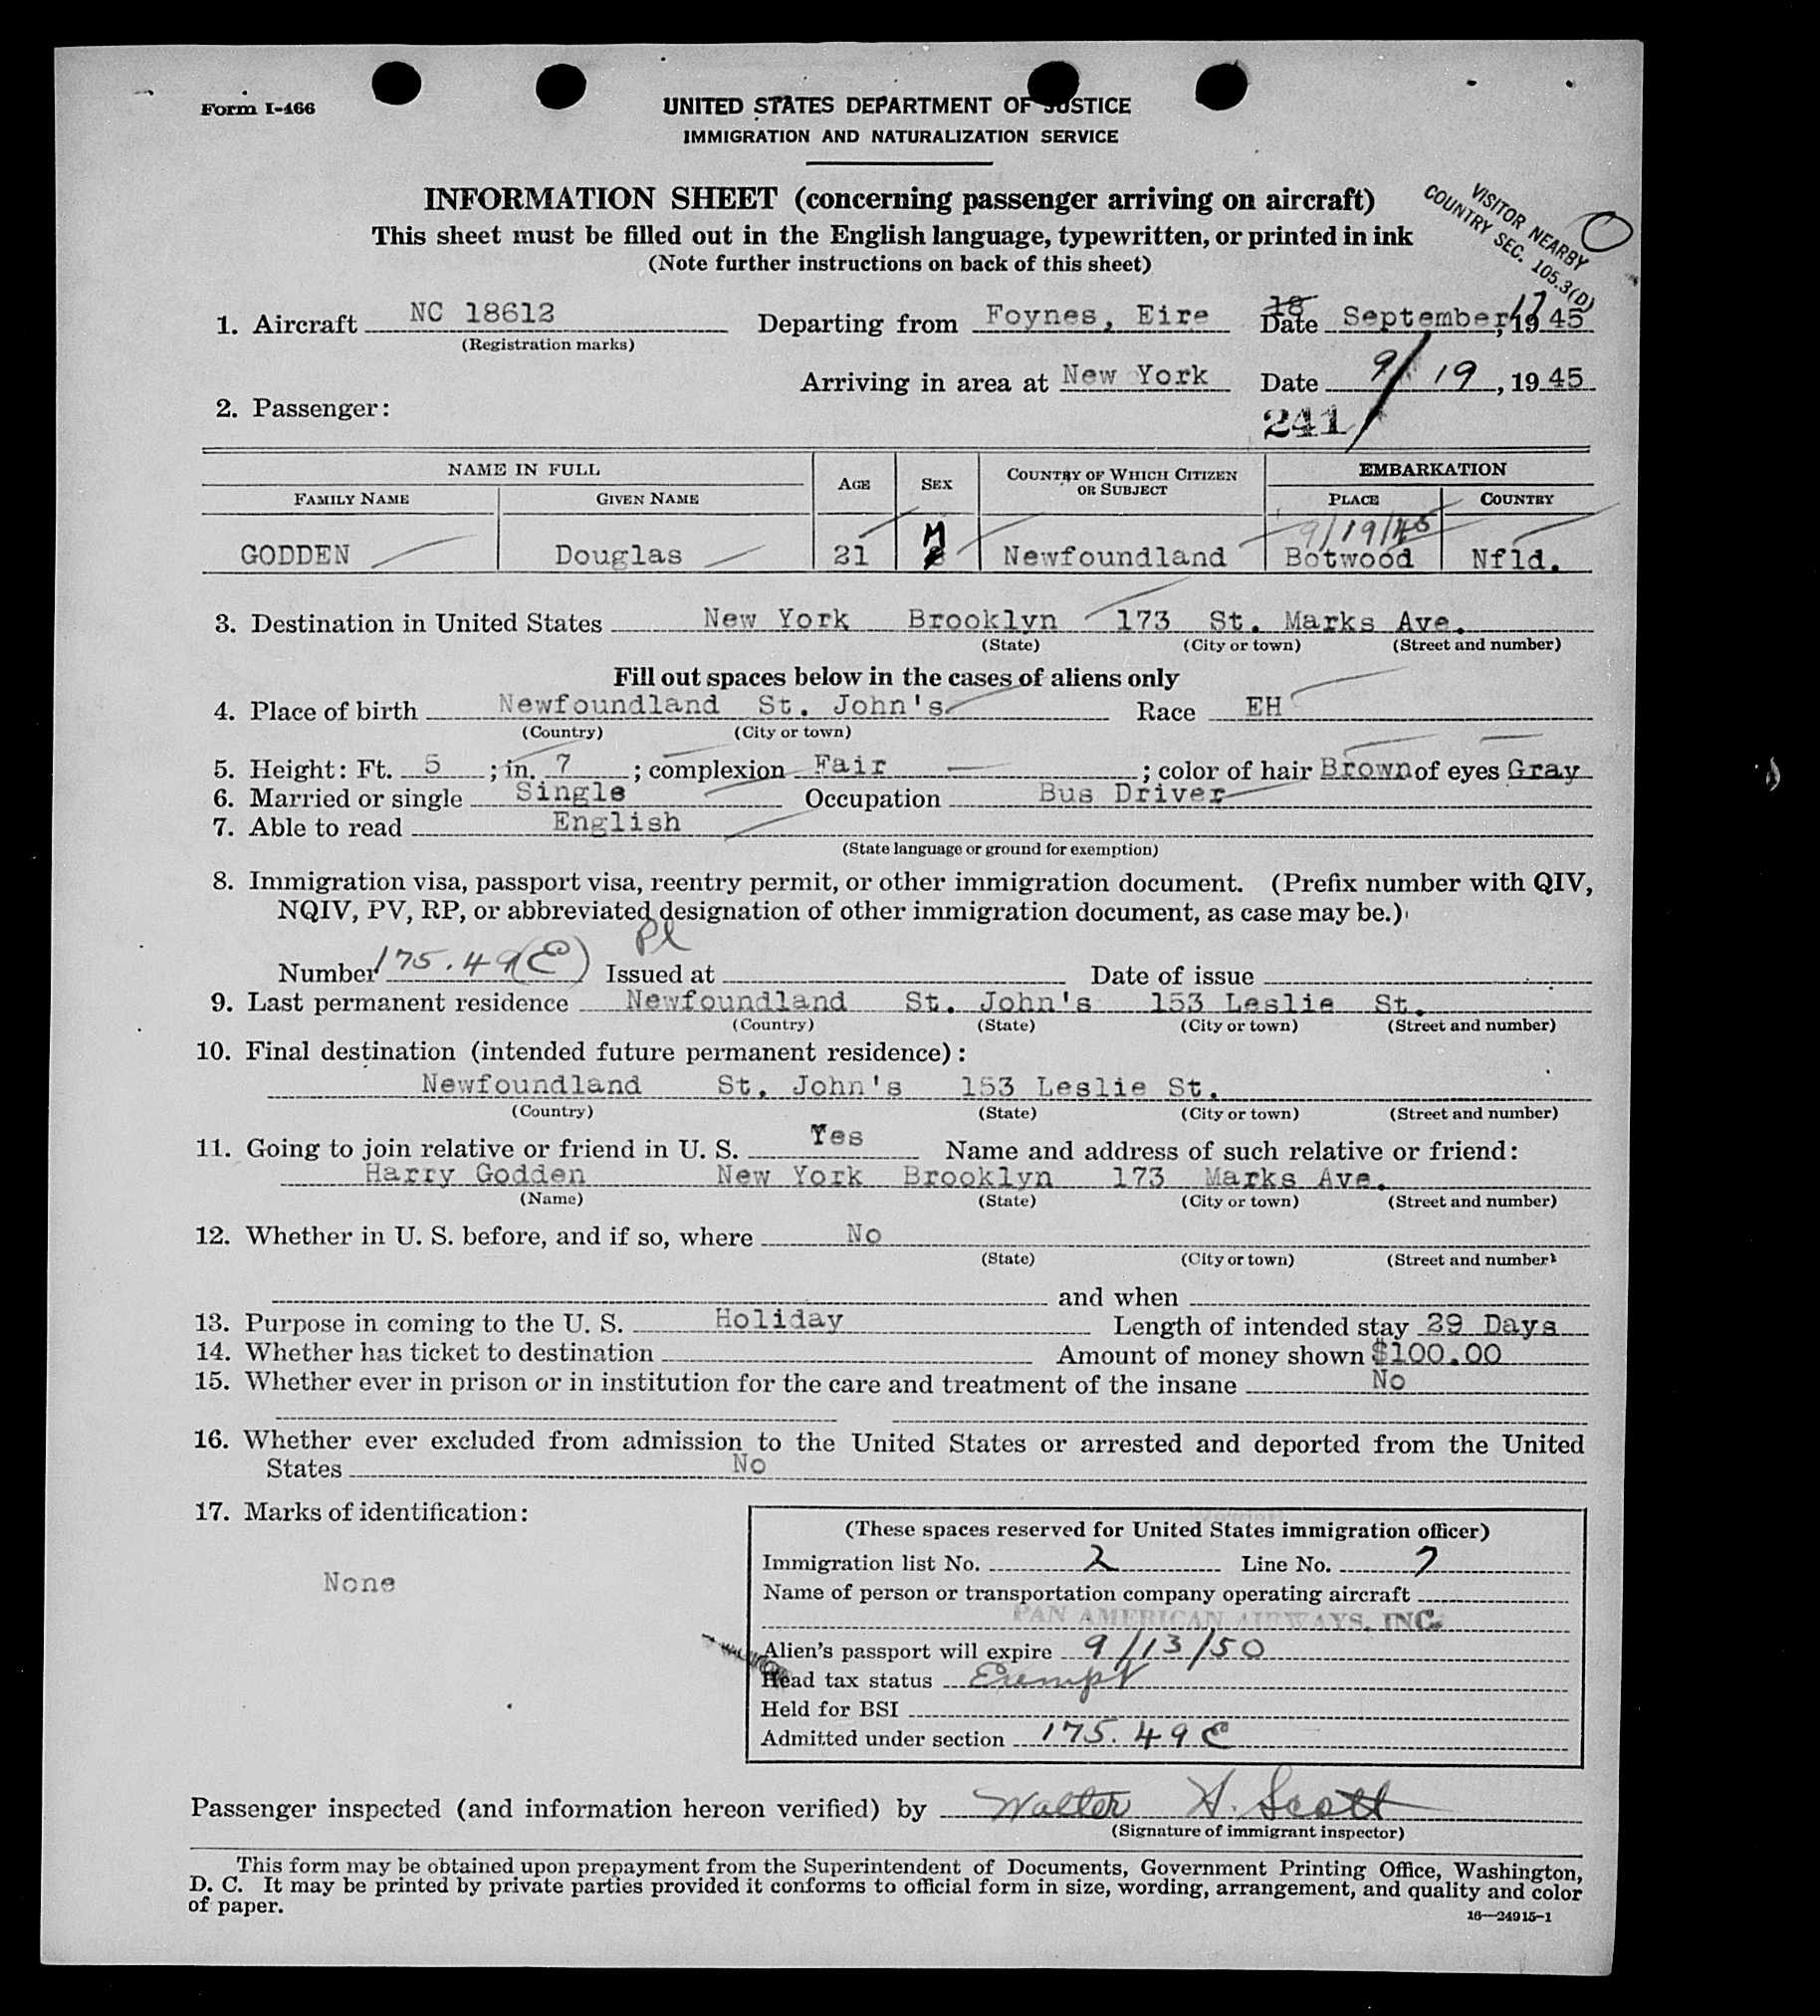 Form I-466
UNITED STATES DEPARTMENT OF JUSTICE
IMMIGRATION AND NATURALIZATION SERVICE
INFORMATION SHEET (concerning passenger arriving on aircraft)
This sheet must be filled out in the English language, typewritten, or printed in ink
(Note further instructions on back of this sheet)
VISITOR NEARBY
COUNTRY SEC. 105.3(D)
1. Aircraft NC 18612 Departing from Foynes, Eire 18 Date September, 17 19 45
(Registration marks)
Arriving in area at New York Date 9/19, 19 45
2. Passenger:
241
NAME IN FULL AGE SEX COUNTRY OF WHICH CITIZEN OR SUBJECT EMBARKATION
FAMILY NAME GIVEN NAME PLACE COUNTRY
9/19/45
GODDEN Douglas 21 M Newfoundland Botwood Nfld.
3. Destination in United States New York Brooklyn 173 St. Marks Ave.
(State) (City or town) (Street and number)
Fill out spaces below in the cases of aliens only
4. Place of birth Newfoundland St. John's Race EH
(Country) (City or town)
5. Height: Ft. 5 ; in. 7 ; complexion Fair ; color of hair Brown of eyes Gray
6. Married or single Single Occupation Bus Driver
7. Able to read English
(State language or ground for exemption)
8. Immigration visa, passport visa, reentry permit, or other immigration document. (Prefix number with QIV,
NQIV, PV, RP, or abbreviated designation of other immigration document, as case may be.)
Pl
Number 175.49(E) Issued at Date of issue
9. Last permanent residence Newfoundland St. John's 153 Leslie St.
(Country) (State) (City or town) (Street and number)
10. Final destination (intended future permanent residence):
Newfoundland St. John's 153 Leslie St.
(Country) (State) (City or town) (Street and number)
11. Going to join relative or friend in U. S. Yes Name and address of such relative or friend:
Harry Godden New York Brooklyn 173 Marks Ave.
(Name) (State) (City or town) (Street and number)
12. Whether in U. S. before, and if so, where No
(State) (City or town) (Street and number)
and when
13. Purpose in coming to the U. S. Holiday Length of intended stay 29 Days
14. Whether has ticket to destination Amount of money shown $100.00
15. Whether ever in prison or in institution for the care and treatment of the insane No
16. Whether ever excluded from admission to the United States or arrested and deported from the United
States No
17. Marks of identification:
None
(These spaces reserved for United States immigration officer)
Immigration list No. 2 Line No. 7
Name of person or transportation company operating aircraft
PAN AMERICAN AIRWAYS, INC.
Alien's passport will expire 9/13/50
Head tax status Exempt
Held for BSI
Admitted under section 175.49E
Passenger inspected (and information hereon verified) by Walter H. Scott
(Signature of immigrant inspector)
This form may be obtained upon prepayment from the Superintendent of Documents, Government Printing Office, Washington,
D. C. It may be printed by private parties provided it conforms to official form in size, wording, arrangement, and quality and color
of paper.
16—24915-1